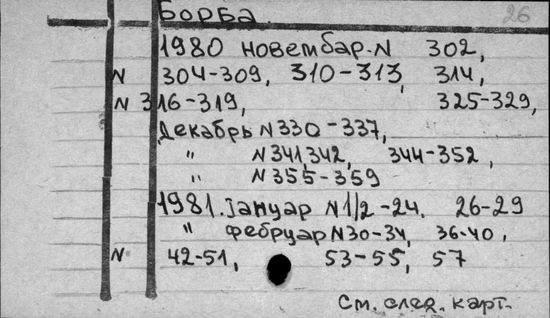 БОРБА. 26
1980 новембар. N 302,
N 304-309, 310-313, 314,
N 316-319, 325-329,
Декабрь N330-337,
" N341,342, 344-352,
" N355-359
1981. јануар N1/2-24. 26-29
" фебруар N30-34, 36-40,
N 42-51, 53-55, 57
См. след. карт.